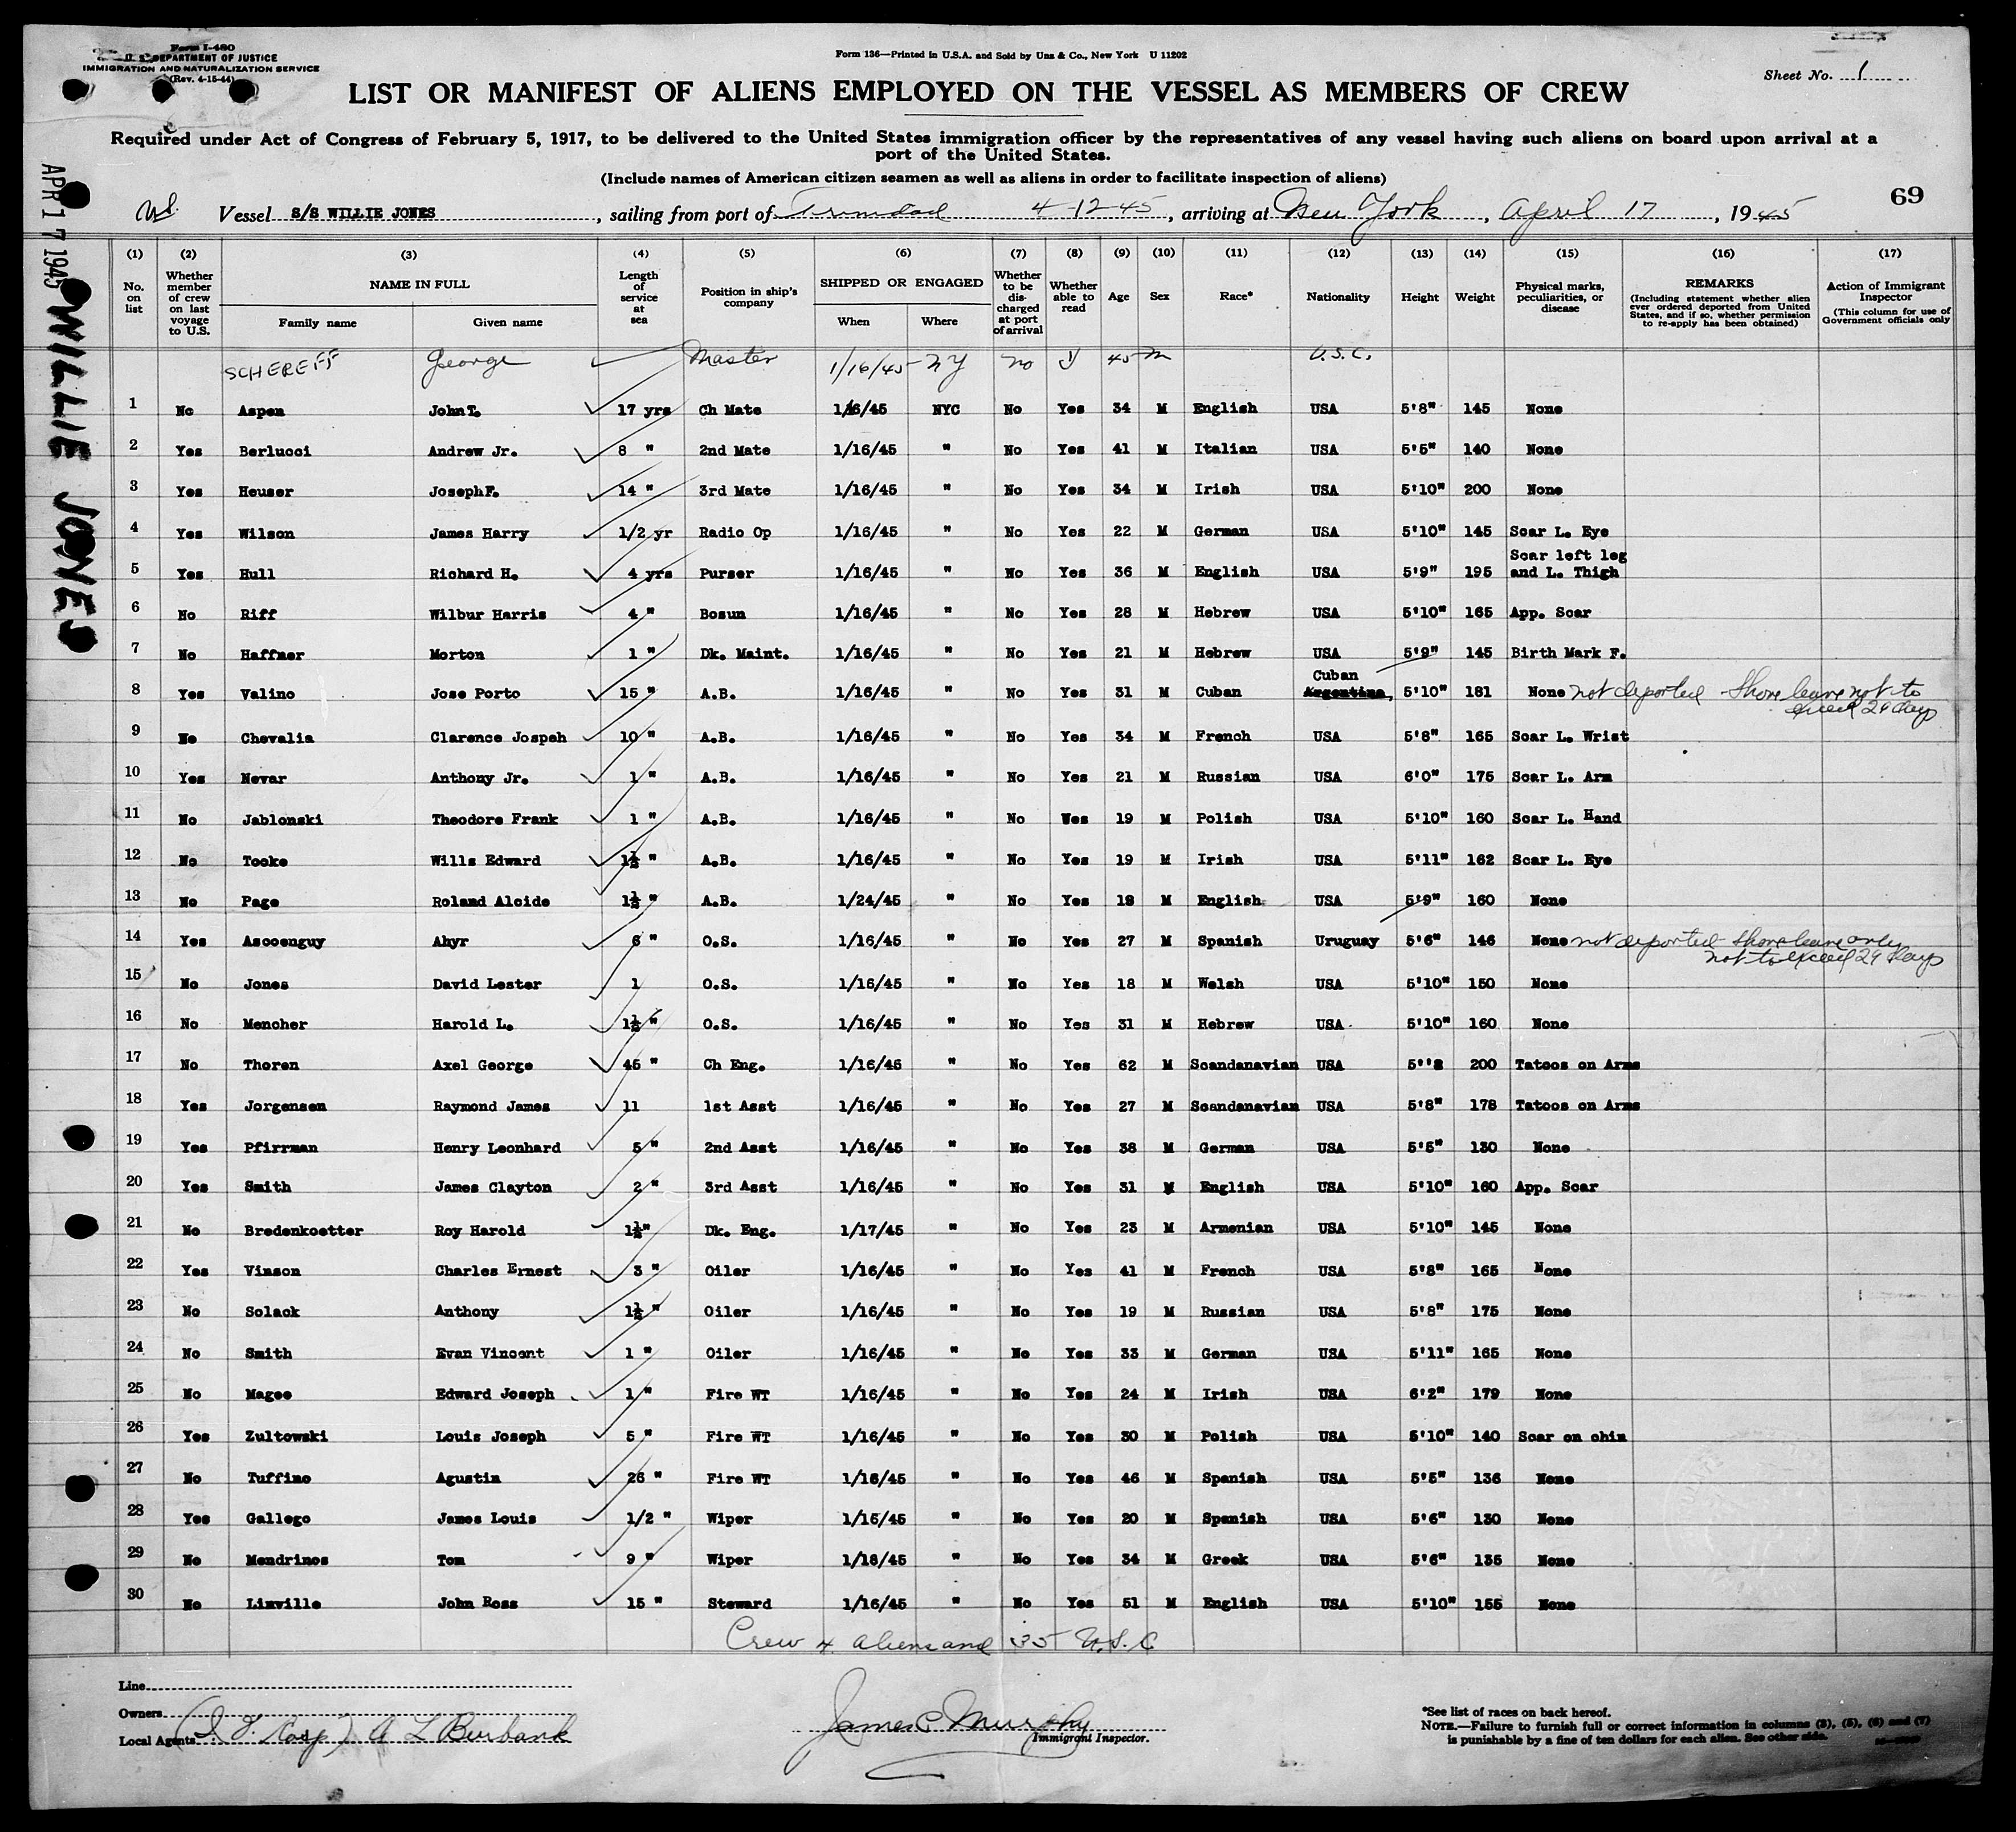 Form I-480
U. S. DEPARTMENT OF JUSTICE
IMMIGRATION AND NATURALIZATION SERVICE
(Rev. 4-15-44)
Form 136—Printed in U.S.A. and Sold by Unz & Co., New York U 11202
Sheet No. 1
LIST OR MANIFEST OF ALIENS EMPLOYED ON THE VESSEL AS MEMBERS OF CREW
Required under Act of Congress of February 5, 1917, to be delivered to the United States immigration officer by the representatives of any vessel having such aliens on board upon arrival at a
port of the United States.
(Include names of American citizen seamen as well as aliens in order to facilitate inspection of aliens)
69
APR 17 1945
WILLIE JONES
US. Vessel S/S WILLIE JONES, sailing from port of Trinidad 4-12-45, arriving at New York, April 17, 1945
(1) No. on list
(2) Whether member of crew on last voyage to U.S.
(3) NAME IN FULL Family name Given name
(4) Length of service at sea
(5) Position in ship's company
(6) SHIPPED OR ENGAGED When Where
(7) Whether to be discharged at port of arrival
(8) Whether able to read
(9) Age
(10) Sex
(11) Race*
(12) Nationality
(13) Height
(14) Weight
(15) Physical marks, peculiarities, or disease
(16) REMARKS (Including statement whether alien ever ordered deported from United States, and if so, whether permission to re-apply has been obtained)
(17) Action of Immigrant Inspector (This column for use of Government officials only
SCHEREFF George Master 1/16/45 NY no Y 45 M U.S.C.
1 No Aspen John T. 17 yrs Ch Mate 1/16/45 NYC No Yes 34 M English USA 5'8" 145 None
2 Yes Berlucci Andrew Jr. 8 " 2nd Mate 1/16/45 " No Yes 41 M Italian USA 5'5" 140 None
3 Yes Heuser Joseph F. 14 " 3rd Mate 1/16/45 " No Yes 34 M Irish USA 5'10" 200 None
4 Yes Wilson James Harry 1/2 yr Radio Op 1/16/45 " No Yes 22 M German USA 5'10" 145 Scar L. Eye
5 Yes Hull Richard H. 4 yrs Purser 1/16/45 " No Yes 36 M English USA 5'9" 195 Scar left leg and L. Thigh
6 No Riff Wilbur Harris 4 " Bosun 1/16/45 " No Yes 28 M Hebrew USA 5'10" 165 App. Scar
7 No Haffner Morton 1 " Dk. Maint. 1/16/45 " No Yes 21 M Hebrew USA 5'9" 145 Birth Mark F.
8 Yes Valino Jose Porto 15 " A.B. 1/16/45 " No Yes 31 M Cuban Cuban Argentina, 5'10" 181 None not deported - Shore leave not to exceed 29 days
9 No Chevalia Clarence Jospeh 10 " A.B. 1/16/45 " No Yes 34 M French USA 5'8" 165 Scar L. Wrist
10 Yes Nevar Anthony Jr. 1 " A.B. 1/16/45 " No Yes 21 M Russian USA 6'0" 175 Scar L. Arm
11 No Jablonski Theodore Frank 1 " A.B. 1/16/45 " No Wes 19 M Polish USA 5'10" 160 Scar L. Hand
12 No Tooke Wills Edward 1½ " A.B. 1/16/45 " No Yes 19 M Irish USA 5'11" 162 Scar L. Eye
13 No Page Roland Alcide 1½ " A.B. 1/24/45 " No Yes 18 M English USA 5'9" 160 None
14 Yes Ascoenguy Ahyr 6 " O.S. 1/16/45 " No Yes 27 M Spanish Uruguay 5'6" 146 None not deported - Shore leave only not to exceed 29 days
15 No Jones David Lester 1 O.S. 1/16/45 " No Yes 18 M Welsh USA 5'10" 150 None
16 No Mencher Harold L. 1½ " O.S. 1/16/45 " No Yes 31 M Hebrew USA 5'10" 160 None
17 No Thoren Axel George 45 " Ch Eng. 1/16/45 " No Yes 62 M Scandanavian USA 5''8 200 Tatoos on Arms
18 Yes Jorgensen Raymond James 11 1st Asst 1/16/45 " No Yes 27 M Scandanavian USA 5'8" 178 Tatoos on Arms
19 Yes Pfirrman Henry Leonhard 5 " 2nd Asst 1/16/45 " No Yes 38 M German USA 5'5" 130 None
20 Yes Smith James Clayton 2 " 3rd Asst 1/16/45 " No Yes 31 M English USA 5'10" 160 App. Scar
21 No Bredenkoetter Roy Harold 1½" Dk. Eng. 1/17/45 " No Yes 23 M Armenian USA 5'10" 145 None
22 Yes Vinson Charles Ernest 3 " Oiler 1/16/45 " No Yes 41 M French USA 5'8" 165 None
23 No Solack Anthony 1½ " Oiler 1/16/45 " No Yes 19 M Russian USA 5'8" 175 None
24 No Smith Evan Vincent 1 " Oiler 1/16/45 " No Yes 33 M German USA 5'11" 165 None
25 No Magee Edward Joseph 1 " Fire WT 1/16/45 " No Yes 24 M Irish USA 6'2" 179 None
26 Yes Zultowski Louis Joseph 5 " Fire WT 1/16/45 " No Yes 30 M Polish USA 5'10" 140 Scar on chin
27 No Tuffino Agustin 26 " Fire WT 1/16/45 " No Yes 46 M Spanish USA 5'5" 136 None
28 Yes Gallego James Louis 1/2 " Wiper 1/16/45 " No Yes 20 M Spanish USA 5'6" 130 None
29 No Mendrinos Tom 9 " Wiper 1/18/45 " No Yes 34 M Greek USA 5'6" 135 None
30 No Linville John Ross 15 " Steward 1/16/45 " No Yes 51 M English USA 5'10" 155 None
Crew 4 aliens and 35 U.S.C
Line
Owners
Local Agents (I. F. Corp) A L Burbank
James C Murphy
Immigrant Inspector.
*See list of races on back hereof.
NOTE.—Failure to furnish full or correct information in columns (3), (5), (6) and (7)
is punishable by a fine of ten dollars for each alien. See other side.